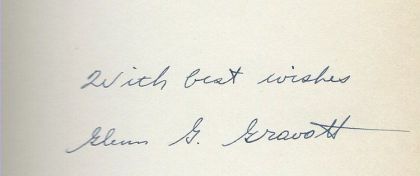 With best wishes
Glenn G. Gravatt